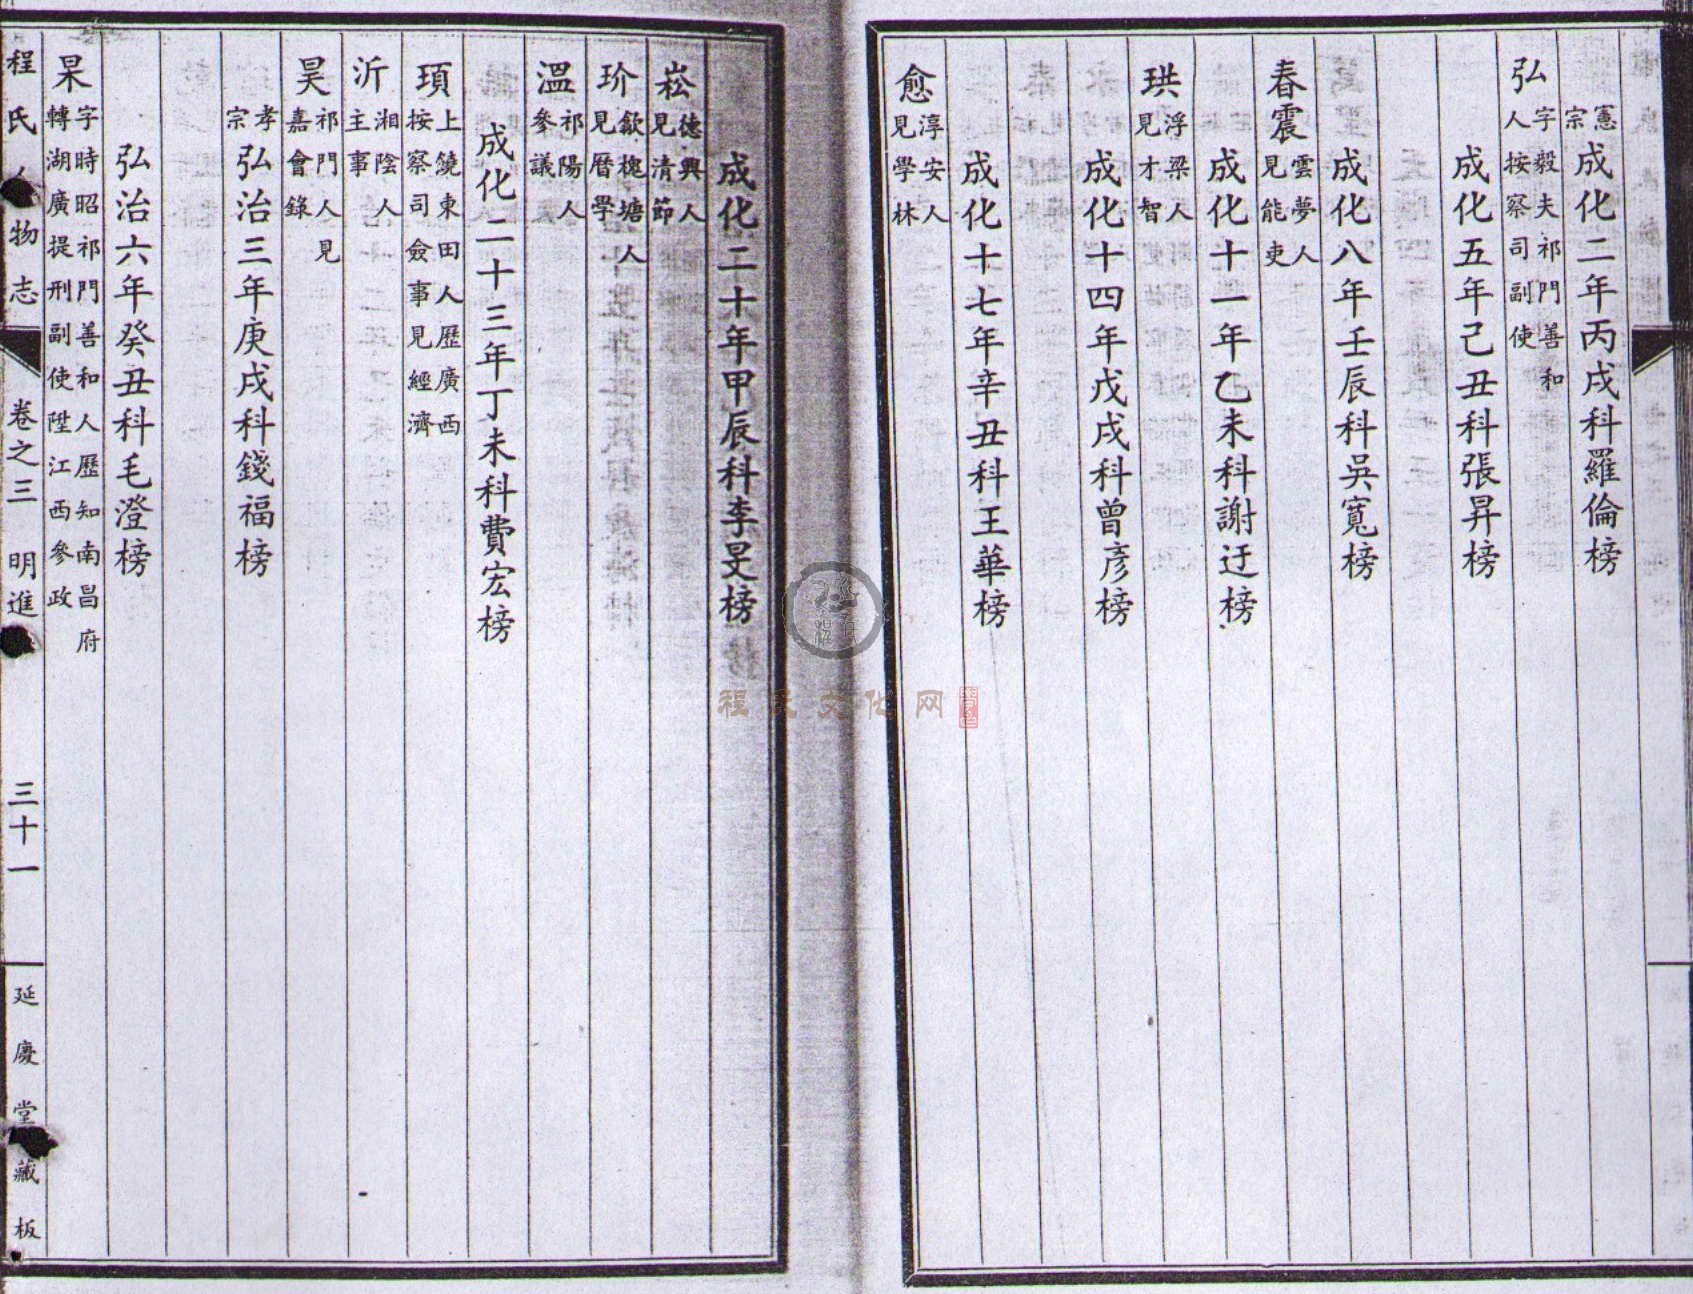 憲宗成化二年丙戌科羅倫榜
弘字毅夫祁門善和人按察司副使
成化五年己丑科張昇榜
成化八年壬辰科吳寬榜
春震雲夢人見能吏
成化十一年乙未科謝迁榜
珙浮梁人見才智
成化十四年戊戌科曾彦榜
成化十七年辛丑科王華榜
愈淳安人見學林
成化二十年甲辰科李旻榜
崧德興人見清節
玠歙槐塘人見曆學
溫祁陽人參議
成化二十三年丁未科費宏榜
頊上饒東田人歷廣西按察司僉事見經濟
沂湘陰人主事
昊祁門人見嘉會錄
孝宗弘治三年庚戌科錢福榜
弘治六年癸丑科毛澄榜
杲字時昭祁門善和人歷知南昌府轉湖廣提刑副使陞江西參政
程氏人物志 卷之三 明進 三十一 延慶堂藏板
程氏文化网